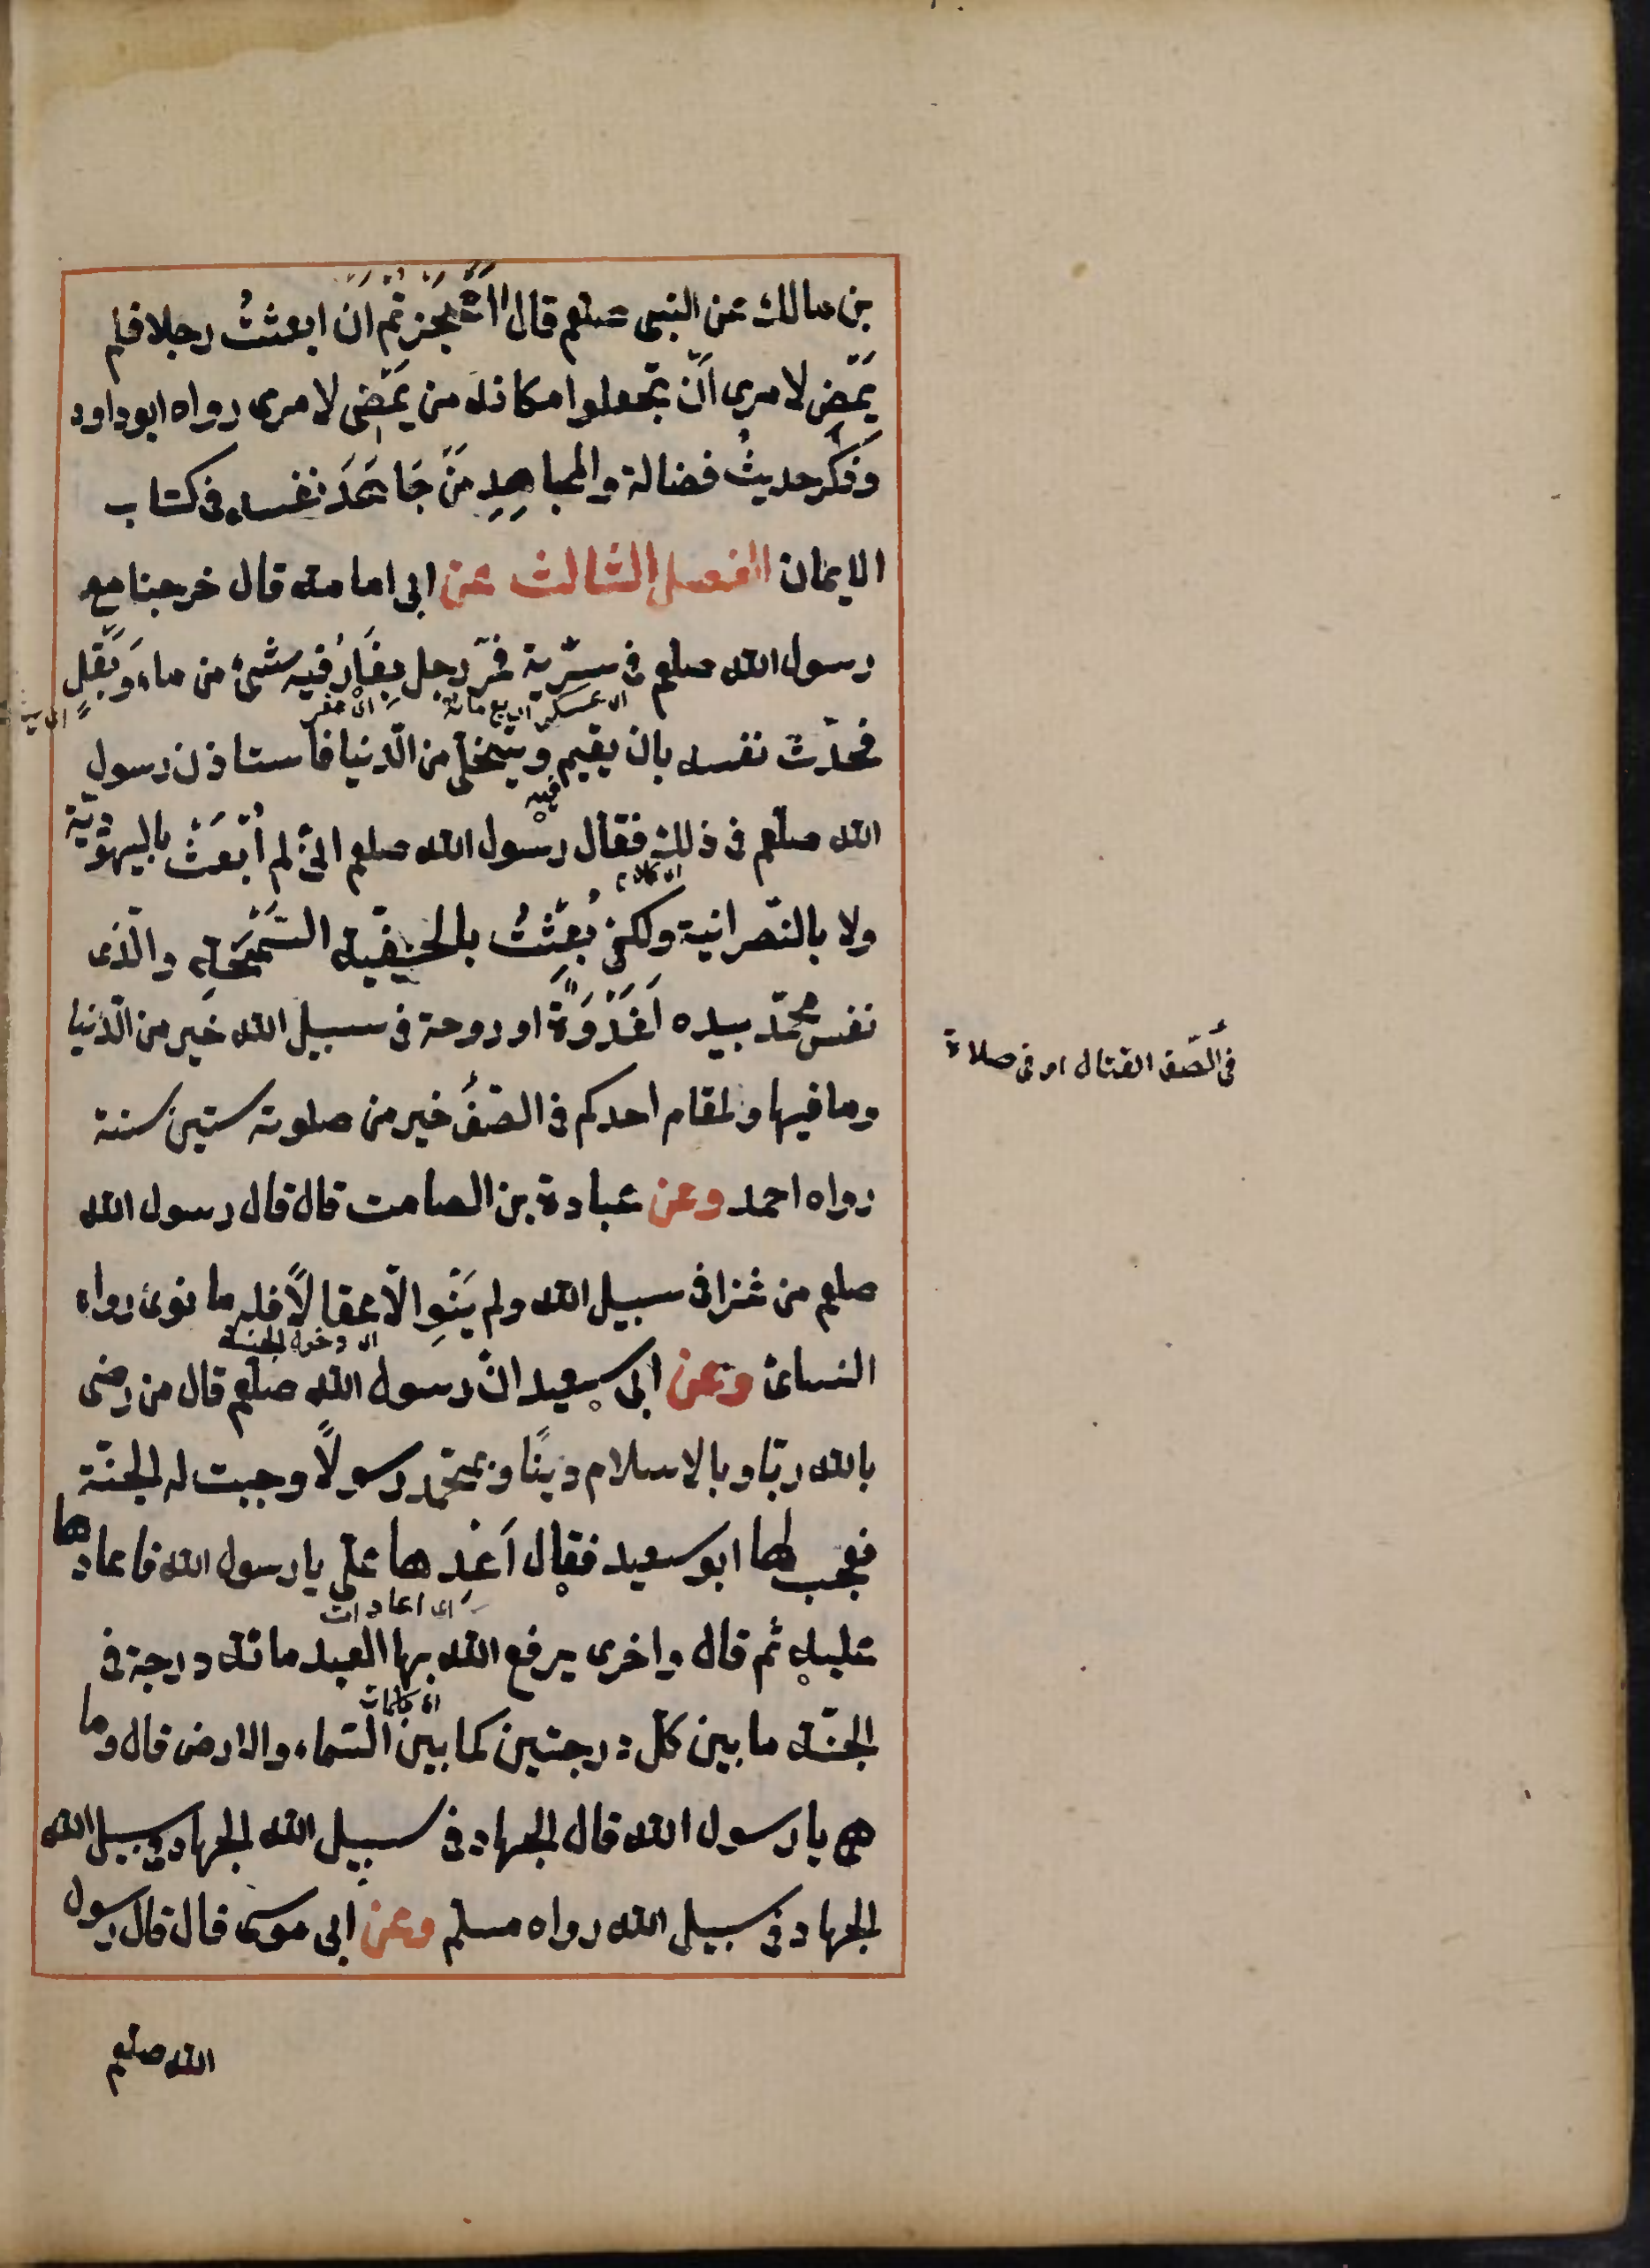 بن مالك عن النبى صلعم قال اَعَجَزتُم ان ابعثتُ رجلا فلم
يَمْضِ لامرى اَنْ تجعلوا مكانه من يَمْضى لامرى رواه ابو داود
وَذَكَر حديثُ فضالة والمجاهِدِ مَنْ جَاهَدَ نفسه فى كتاب
الايمان الفصل الثالث عن ابى امامة قال خرجنا مع
رسول الله صلعم فى سرّية فمرّ رجل بِغَارٍ فيه شئ من ماء وَبَقْلٍ
اى عسكر اربع مائة
فحدّث نفسه بان يقيم ويتخلّى من الدّنيا فاستاذن رسول
فيه
الله صلعم فى ذلك فقال رسول الله صلعم انّى لم اُبْعَثْ باليهوديّة
اى كلام
ولا بالنّصرانية ولكنّى بُعِثْتُ بالحنيفية السَّمْحَةِ والّذى
نفس محمّد بيده لَغَدْوَةٌ او روحة فى سبيل الله خير من الدّنيا
فى الصّف القتال او فى صلاة
وما فيها ولمقام احدكم فى الصّفّ خير من صلوته ستين سنة
رواه احمد وعن عبادة بن الصامت قال قال رسول الله
صلعم من غزا فى سبيل الله ولم يَنْوِ الّا عقالًا فله ما نوى رواه
اى دخول الجنة
النسائى وعن ابى سعيد انّ رسول الله صلعم قال من رضى
بالله ربّا وبالاسلام دينًا وبمحمّد رسولًا وجبت له الجنّة
فعجب لها ابو سعيد فقال اَعِدْها علىّ يا رسول الله فاعادها
اى اعادات
عليه ثم قال واخرى يرفع الله بها العبد مائة درجة فى
اى كلمات
الجنّة ما بين كلّ درجتين كما بين السّماء والارض قال وما
هى يا رسول الله قال الجهاد فى سبيل الله الجهاد فى سبيل الله
الجهاد فى سبيل الله رواه مسلم وعن ابى موسى قال قال رسول
الله صلعم